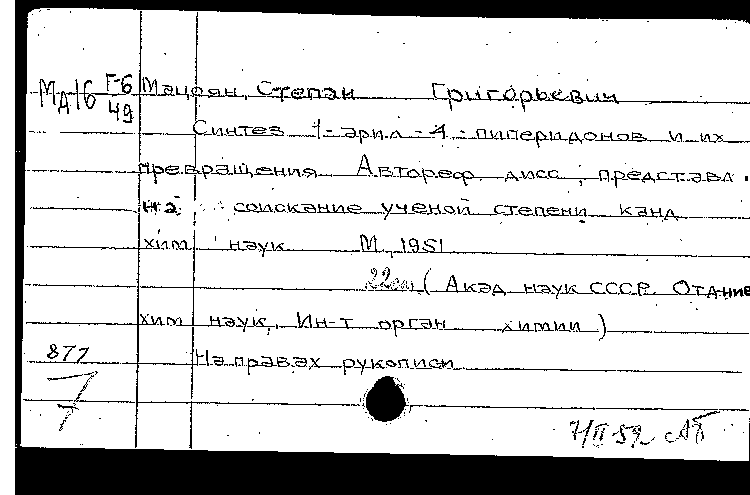 МД16 Г-6 Мацоян, Степан Григорьевич
49
Синтез 1-арил-4-пиперидонов и их
превращения Автореф дисс, представл.
на соискание ученой степени канд
хим наук М, 1951
22см (Акад наук СССР. Отд-ние
хим наук, Ин-т орган химии)
877 На правах рукописи
7
7/II 52 АБ